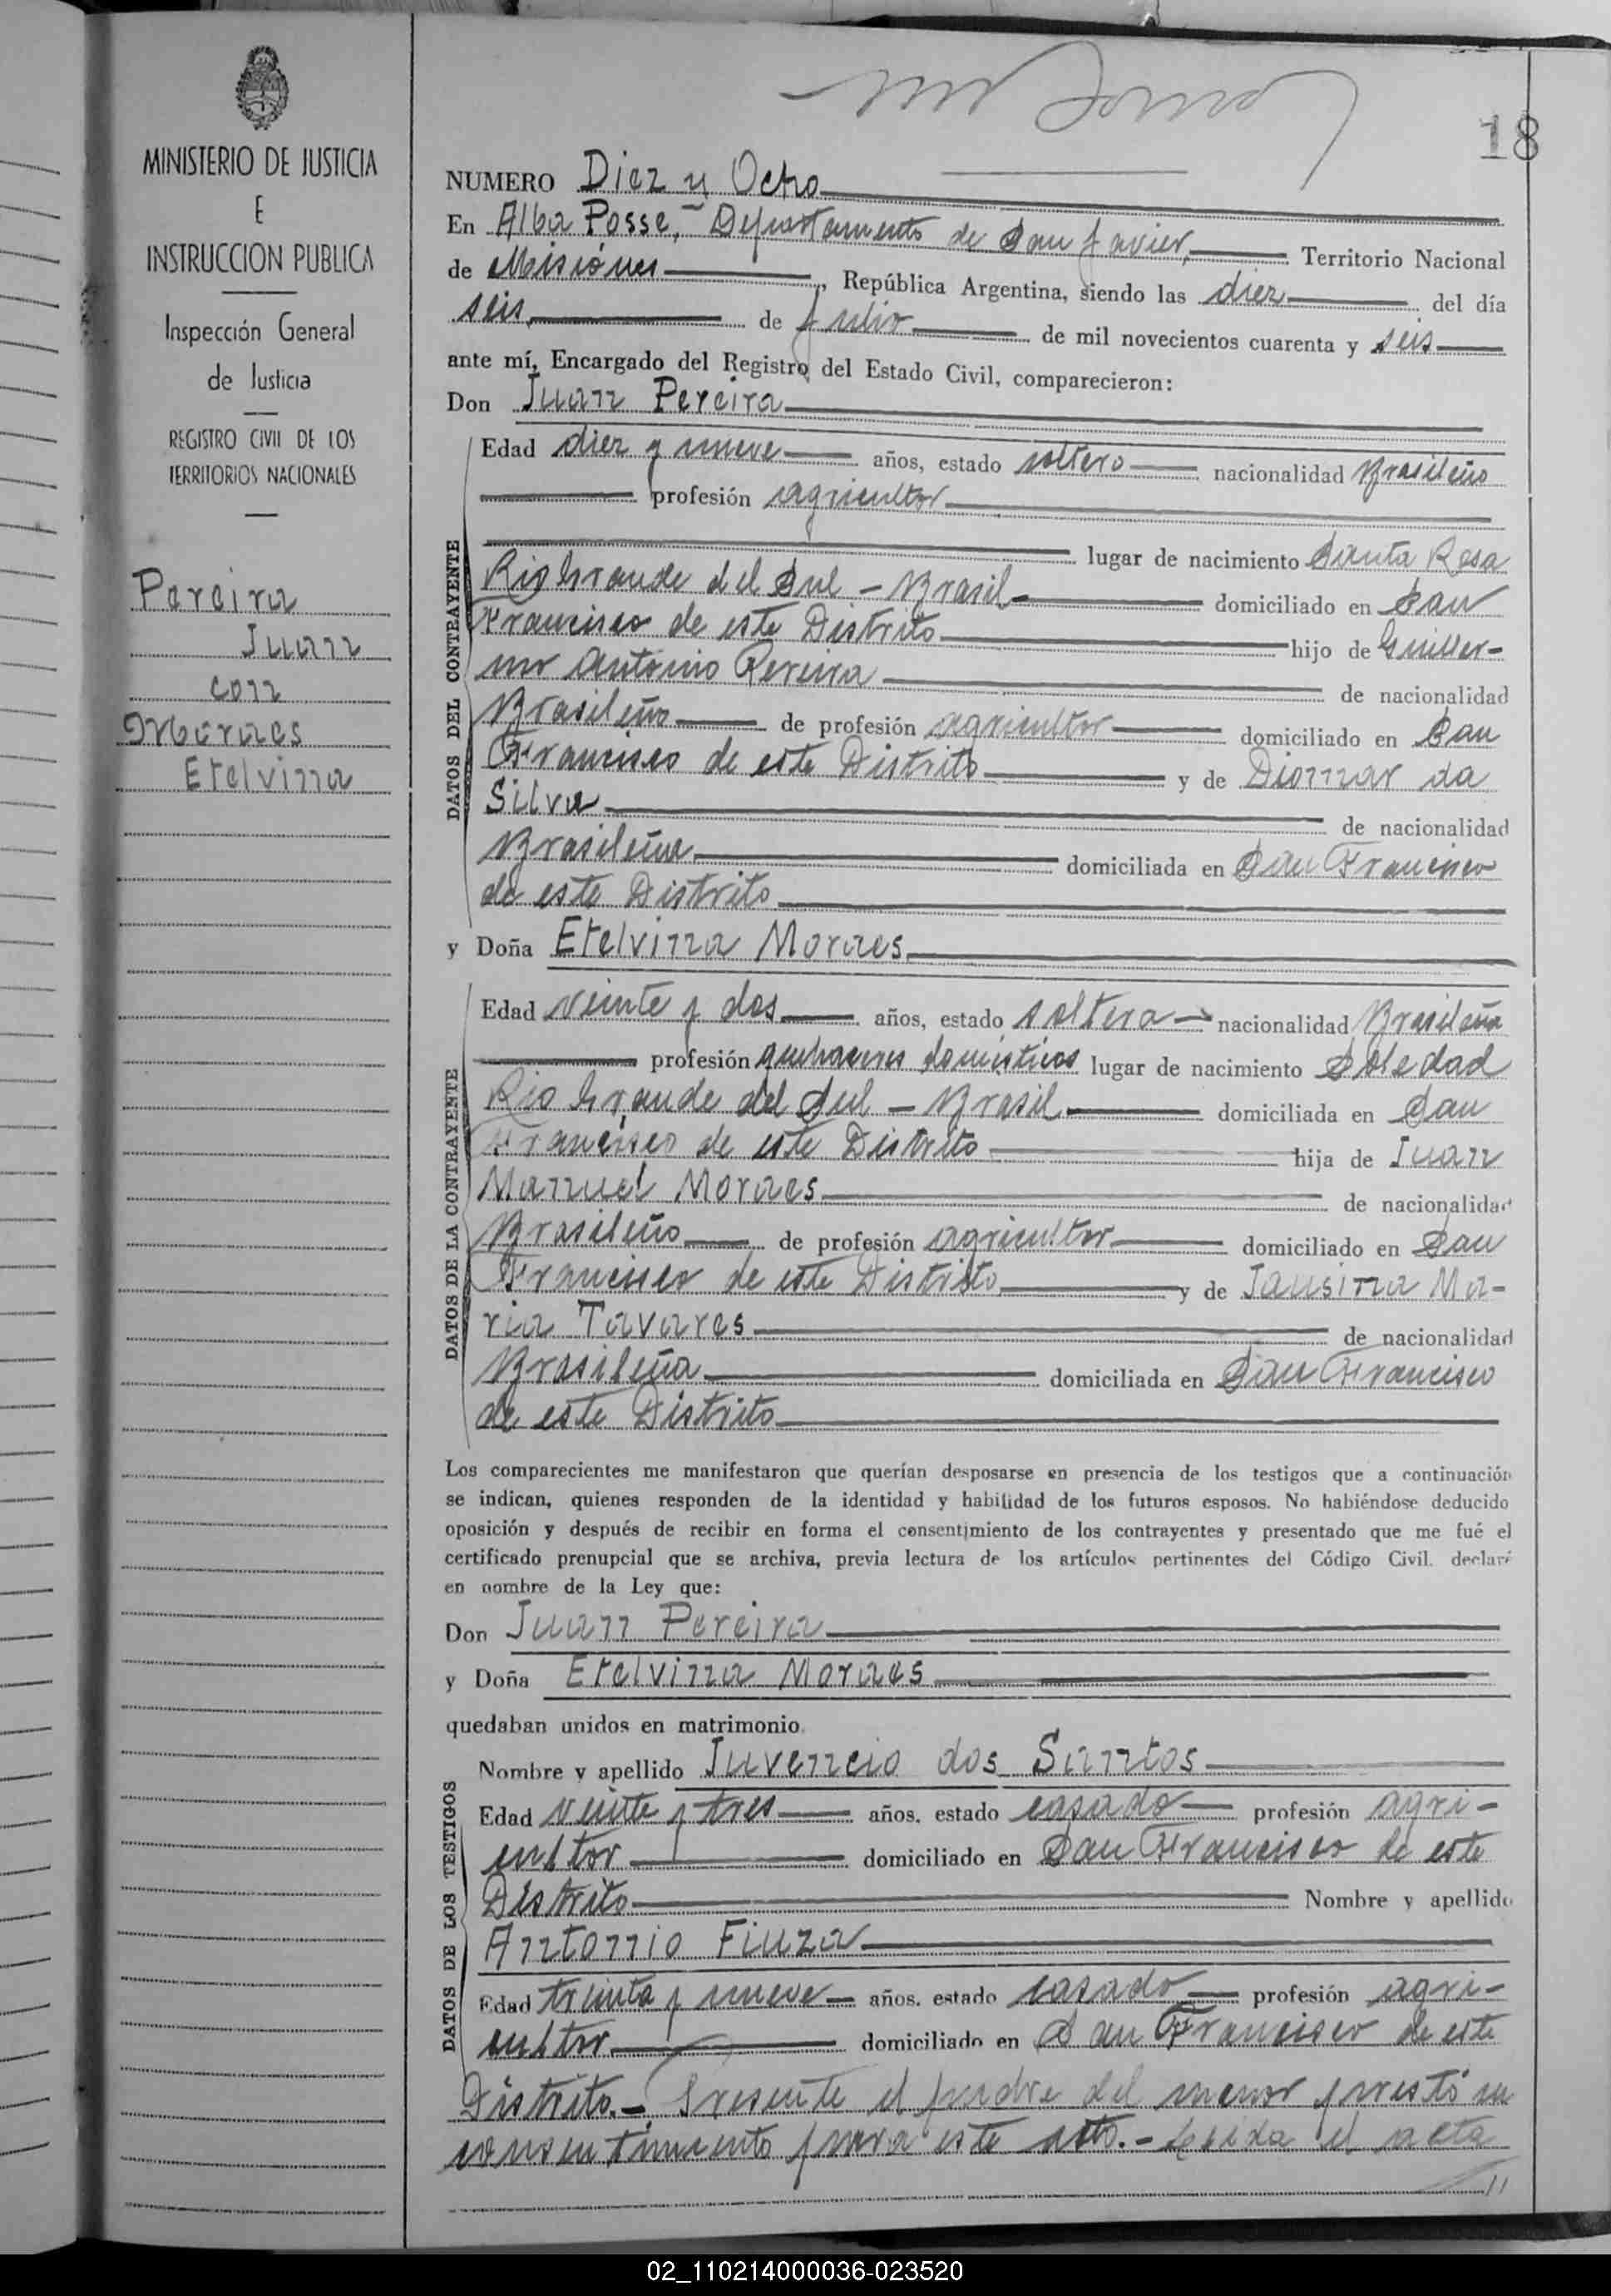 18
MINISTERIO DE JUSTICIA
E
INSTRUCCION PUBLICA
Inspección General
de Justicia
REGISTRO CIVIL DE LOS
TERRITORIOS NACIONALES
Pereira
Juan
con
Moraes
Etelvina
NUMERO Diez y Ocho
En Alba Posse, Departamento de San Javier, Territorio Nacional
de Misiones, República Argentina, siendo las diez del día
seis de Julio de mil novecientos cuarenta y seis
ante mí, Encargado del Registro del Estado Civil, comparecieron:
Don Juan Pereira
DATOS DEL CONTRAYENTE
Edad diez y nueve años, estado soltero nacionalidad Brasileño
profesión agricultor
lugar de nacimiento Santa Rosa
Rio Grande del Sul - Brasil domiciliado en San
Francisco de este Distrito hijo de Guiller-
mo Antonio Pereira de nacionalidad
Brasileño de profesión agricultor domiciliado en San
Francisco de este Distrito y de Diomar da
Silva de nacionalidad
Brasileña domiciliada en San Francisco
de este Distrito
y Doña Etelvina Moraes
DATOS DE LA CONTRAYENTE
Edad veinte y dos años, estado soltera nacionalidad Brasileña
profesión quehaceres domésticos lugar de nacimiento Soledad
Rio Grande del Sul - Brasil domiciliada en San
Francisco de este Distrito hija de Juan
Manuel Moraes de nacionalidad
Brasileño de profesión agricultor domiciliado en San
Francisco de este Distrito y de Jansina Ma-
ria Tavares de nacionalidad
Brasileña domiciliada en San Francisco
de este Distrito
Los comparecientes me manifestaron que querían desposarse en presencia de los testigos que a continuación
se indican, quienes responden de la identidad y habilidad de los futuros esposos. No habiéndose deducido
oposición y después de recibir en forma el consentimiento de los contrayentes y presentado que me fué el
certificado prenupcial que se archiva, previa lectura de los artículos pertinentes del Código Civil. declaré
en nombre de la Ley que:
Don Juan Pereira
y Doña Etelvina Moraes
quedaban unidos en matrimonio.
DATOS DE LOS TESTIGOS
Nombre y apellido Juvencio dos Santos
Edad veinte y tres años, estado casado profesión agri-
cultor domiciliado en San Francisco de este
Distrito Nombre y apellido
Antonio Fiuza
Edad treinta y nueve años, estado casado profesión agri-
cultor domiciliado en San Francisco de este
Distrito.- Presente el padre del menor prestó su
consentimiento para este acto.- Leida el acta
02_110214000036-023520